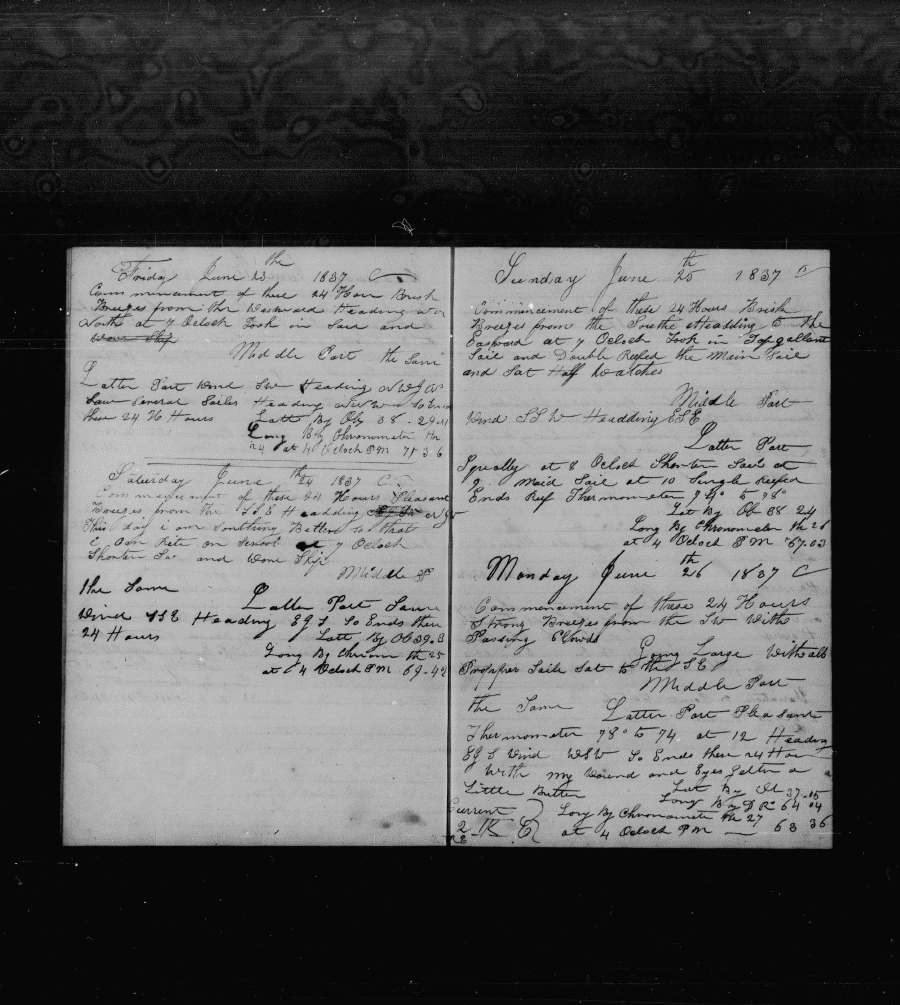 Friday June 23th 1837
Commencement of these 24 Hour Brisk
Breezes from the Westward Heading
North at 7 Oclock Took in Sail and
Wore Ship
Middle Part the Same
Latter Part Wind SW Heading NW
Saw Several Sailes Heading So Ends
these 24 Hours Latt By Ob 38-29
Long By Chronometer the
24 at 4 Oclock PM 71 36
Saturday June 24th 1837
Commencement of these 24 Hours Pleasant
Breezes from the SSE Headding
This day i am Somthing Better So that
Oclock
Shorten Sail and Wore Ship
Middle P
the Same
Latter Part Same
Wind SSE Heading E So Ends these
24 Hours Latt By Ob 39.
Long By Chronom th 25
at 4 Oclock PM 69-42
Sunday June 25th 1837
Commencement of these 24 Hours Brisk
Breezes from the Southe Headding to the
Eastward at 7 Oclock Took in Top gallant
Sail and Double Reefed the Main Sail
and Sat Half Watches
Middle Part
Wind SSW Headding ESE
Latter Part
Squally at 8 Oclock Shorten Sail at
9 Maid Sail at 10 Single Reefed
Ends Thermometer to
Lat By Ob 38 24
Long By Chronometer th 26
at 4 Oclock PM 67.03
Monday June 26th 1837
Commencement of these 24 Hours
Strong Breezes from the SW Withe
Passing Clowds
Going Large With all
Propper Saile Sat to the SE
Middle Part
the Same Latter Part Pleasant
Thermometer 78° to 74. at 12 Heading
Wind WSW So Ends these 24 Hour
With my Wound and Eyes Gettin a
Little Better Lat By Ob 37-15
Long By D R 64 04
Current Long By Chronometer th 27
2 K at 4 Oclock PM 63 36